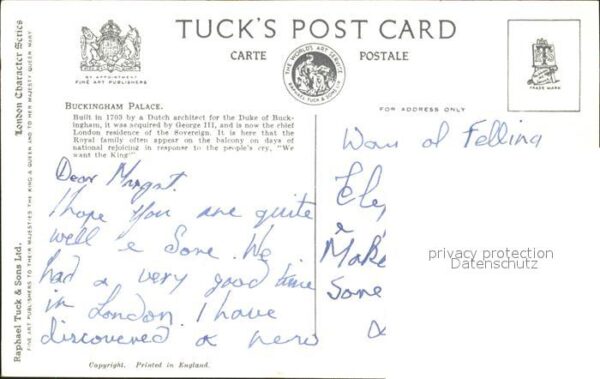 TUCK'S POST CARD
CARTE POSTALE
BY APPOINTMENT
FINE ART PUBLISHERS
THE WORLD'S ART SERVICE
RAPHAEL TUCK & SONS LTD
TRADE MARK
FOR ADDRESS ONLY
London Character Series
Raphael Tuck & Sons Ltd.
FINE ART PUBLISHERS TO THEIR MAJESTIES THE KING & QUEEN AND TO HER MAJESTY QUEEN MARY
BUCKINGHAM PALACE.
Built in 1703 by a Dutch architect for the Duke of Buck-
ingham, it was acquired by George III, and is now the chief
London residence of the Sovereign. It is here that the
Royal family often appear on the balcony on days of
national rejoicing in response to the people's cry, "We
want the King!"
Dear
I hope you are quite
well e Some. We
had a very good time
in London. I have
discovered a
of Felling
e
Make
Some
&
privacy protection
Datenschutz
Copyright. Printed in England.